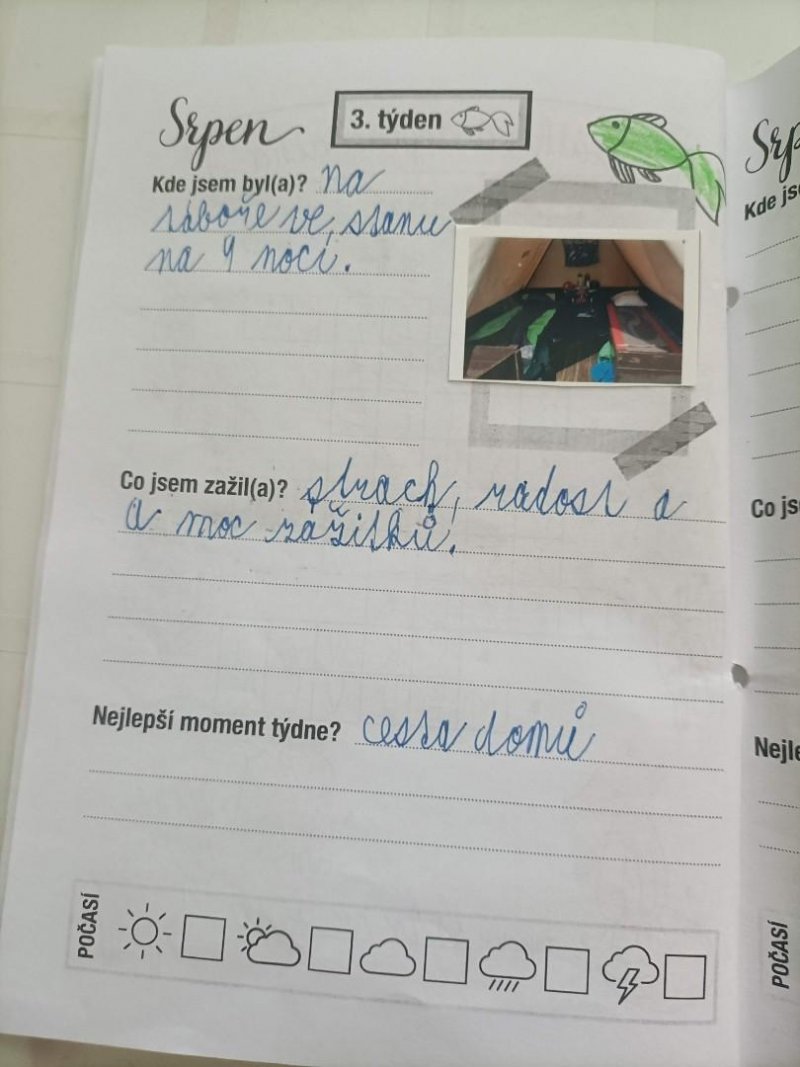 Srpen
3. týden
Kde jsem byl(a)? na
táboře ve stanu
na 9 nocí.
Co jsem zažil(a)? strach, radost a
a moc zážitků.
Nejlepší moment týdne? cesta domů
POČASÍ
Srp
Kde jse
Co jse
Nejle
POČASÍ